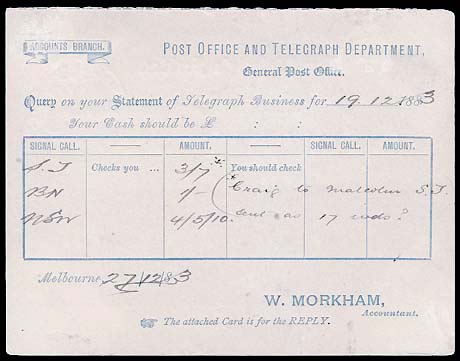 ACCOUNTS BRANCH.
POST OFFICE AND TELEGRAPH DEPARTMENT,
General Post Office.
Query on your Statement of Telegraph Business for 19.12.1883
Your Cash should be £ : :
SIGNAL CALL. AMOUNT. SIGNAL CALL. AMOUNT.
S.J Checks you ... 3/7 You should check
BN 1/- Craig to Malcolm S.J.
NSW 4/5/10. sent as 17 wds?
Melbourne, 27/12/83
W. MORKHAM,
Accountant.
☞ The attached Card is for the REPLY.